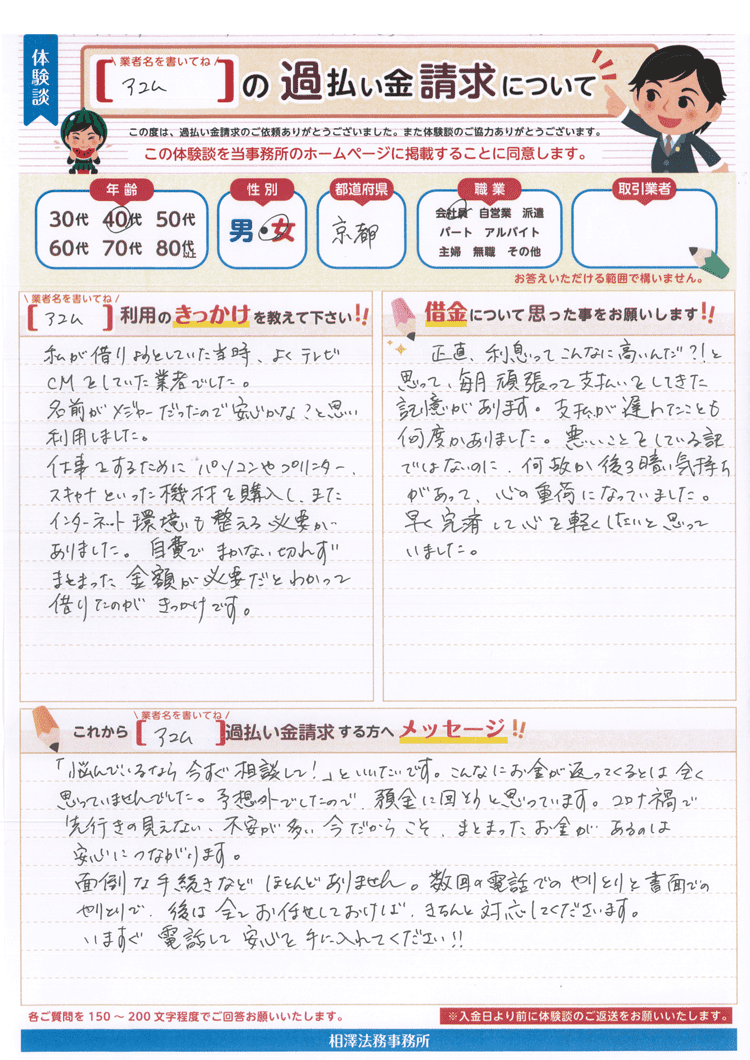 体験談
\ 業者名を書いてね /
[アコム]の過払い金請求について
この度は、過払い金請求のご依頼ありがとうございました。また体験談のご協力ありがとうございます。
この体験談を当事務所のホームページに掲載することに同意します。
年齢 性別 都道府県 職業 取引業者
30代 40代 50代
60代 70代 80代以上
男・女
京都
会社員 自営業 派遣
パート アルバイト
主婦 無職 その他
お答えいただける範囲で構いません。
\ 業者名を書いてね /
[アコム]利用のきっかけを教えて下さい!!
私が借りようとしていた当時、よくテレビ
CMをしていた業者でした。
名前がメジャーだったので安心かな?と思い
利用しました。
仕事をするためにパソコンやプリンター、
スキャナといった機材を購入し、また
インターネット環境も整える必要が
ありました。自費でまかない切れず
まとまった金額が必要だとわかって
借りたのがきっかけです。
借金について思った事をお願いします!!
正直、利息ってこんなに高いんだ?!と
思って、毎月頑張って支払いをしてきた
記憶があります。支払が遅れたことも
何度かありました。悪いことをしている訳
ではないのに、何故か後ろ暗い気持ち
があって、心の重荷になっていました。
早く完済して心を軽くしたいと思って
いました。
\ 業者名を書いてね /
これから[アコム]過払い金請求する方へメッセージ!!
「悩んでいるなら今すぐ相談して!」といいたいです。こんなにお金が返ってくるとは全く
思っていませんでした。予想外でしたので、預金に回そうと思っています。コロナ禍で
先行きの見えない、不安が多い今だからこそ、まとまったお金があるのは
安心につながります。
面倒な手続きなどほとんどありません。数回の電話でのやりとりと書面での
やりとりで、後は全てお任せしておけば、きちんと対応してくださいます。
いますぐ電話して安心を手に入れてください!!
各ご質問を150～200文字程度でご回答お願いいたします。
※入金日より前に体験談のご返送をお願いいたします。
相澤法務事務所